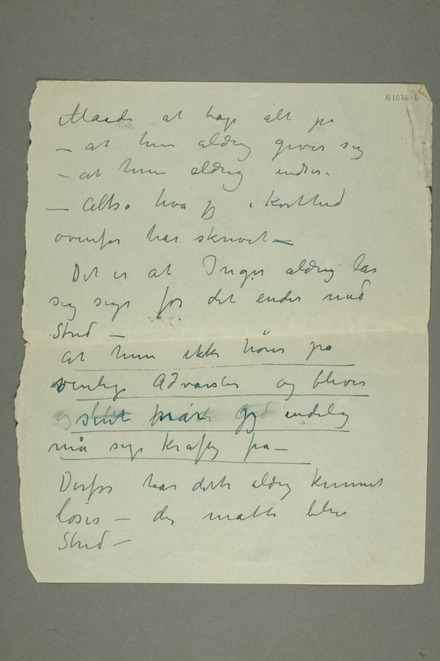 N1076-6
Maade at tage alt på
– at hun aldrig giver sig
– at hun aldrig
– Altså hva jeg i Korthed
ovenfor har skrevet –
Det er at Inger aldrig lar
sig sige før det ender med
Strid –
at hun ikke hører på
venlige Advarsler og bliver
jeg endelig
må sige kraftig fra –
Derfor har dette aldrig kunnet
løses – det måtte blive
Strid –